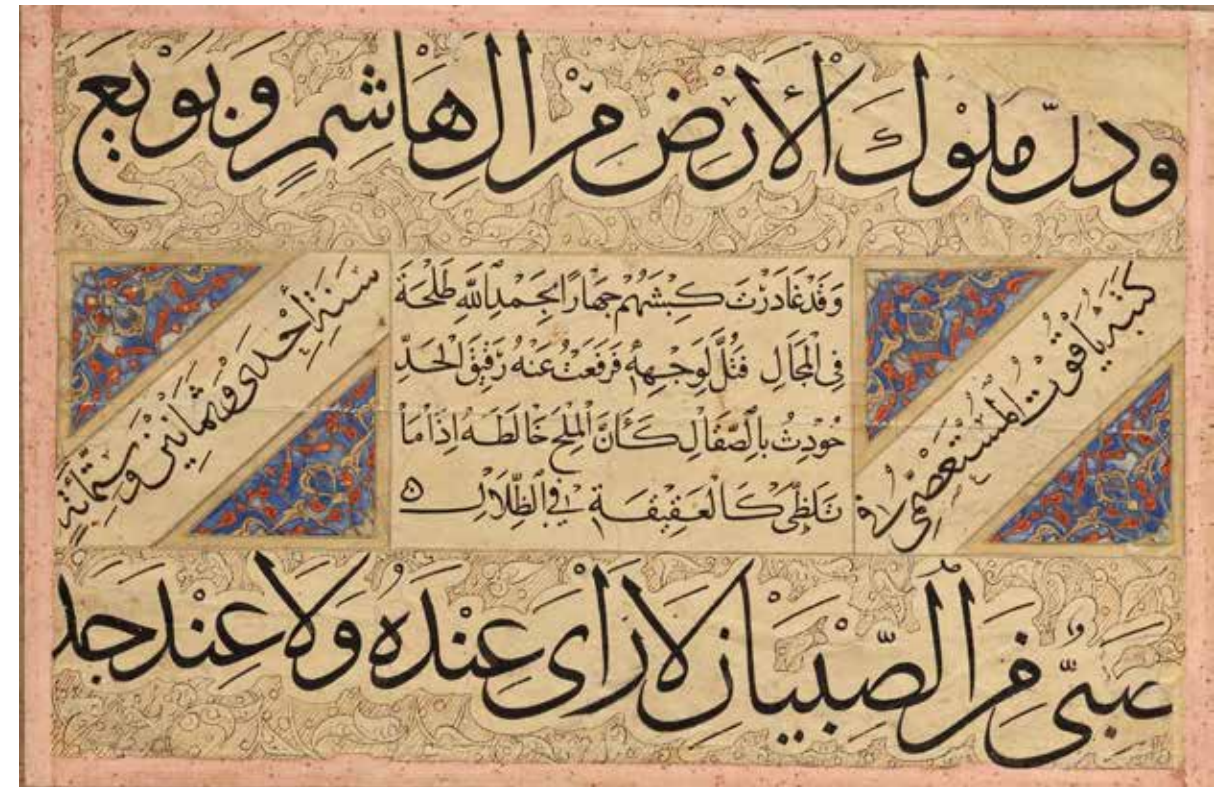 ودلّ ملوك الأرض من ال هاشم وبويع
كتبه ياقوت المستعصمي في
وَقَدْ غَادَرْتَ كِبْشَهُمْ جَهَارًا بِحَمْدِ اللهِ طَلْحَةَ
فِي الْمَجَالِ فَتُلَّ لِوَجْهِهِ فَرَفَعْتُ عَنْهُ رَقِيقَ الْحَدِّ
حُودِثَ بِالصِّقَالِ كَأَنَّ الْمِلْحَ خَالَطَهُ اِذَا مَا
تَلَظَّى كَالْعَقِيقَةِ فِي الظِّلَالِ
سنة إحدى وثمانين وستمائة
صبيّ من الصّبيان لا راى عنده ولا عند جد